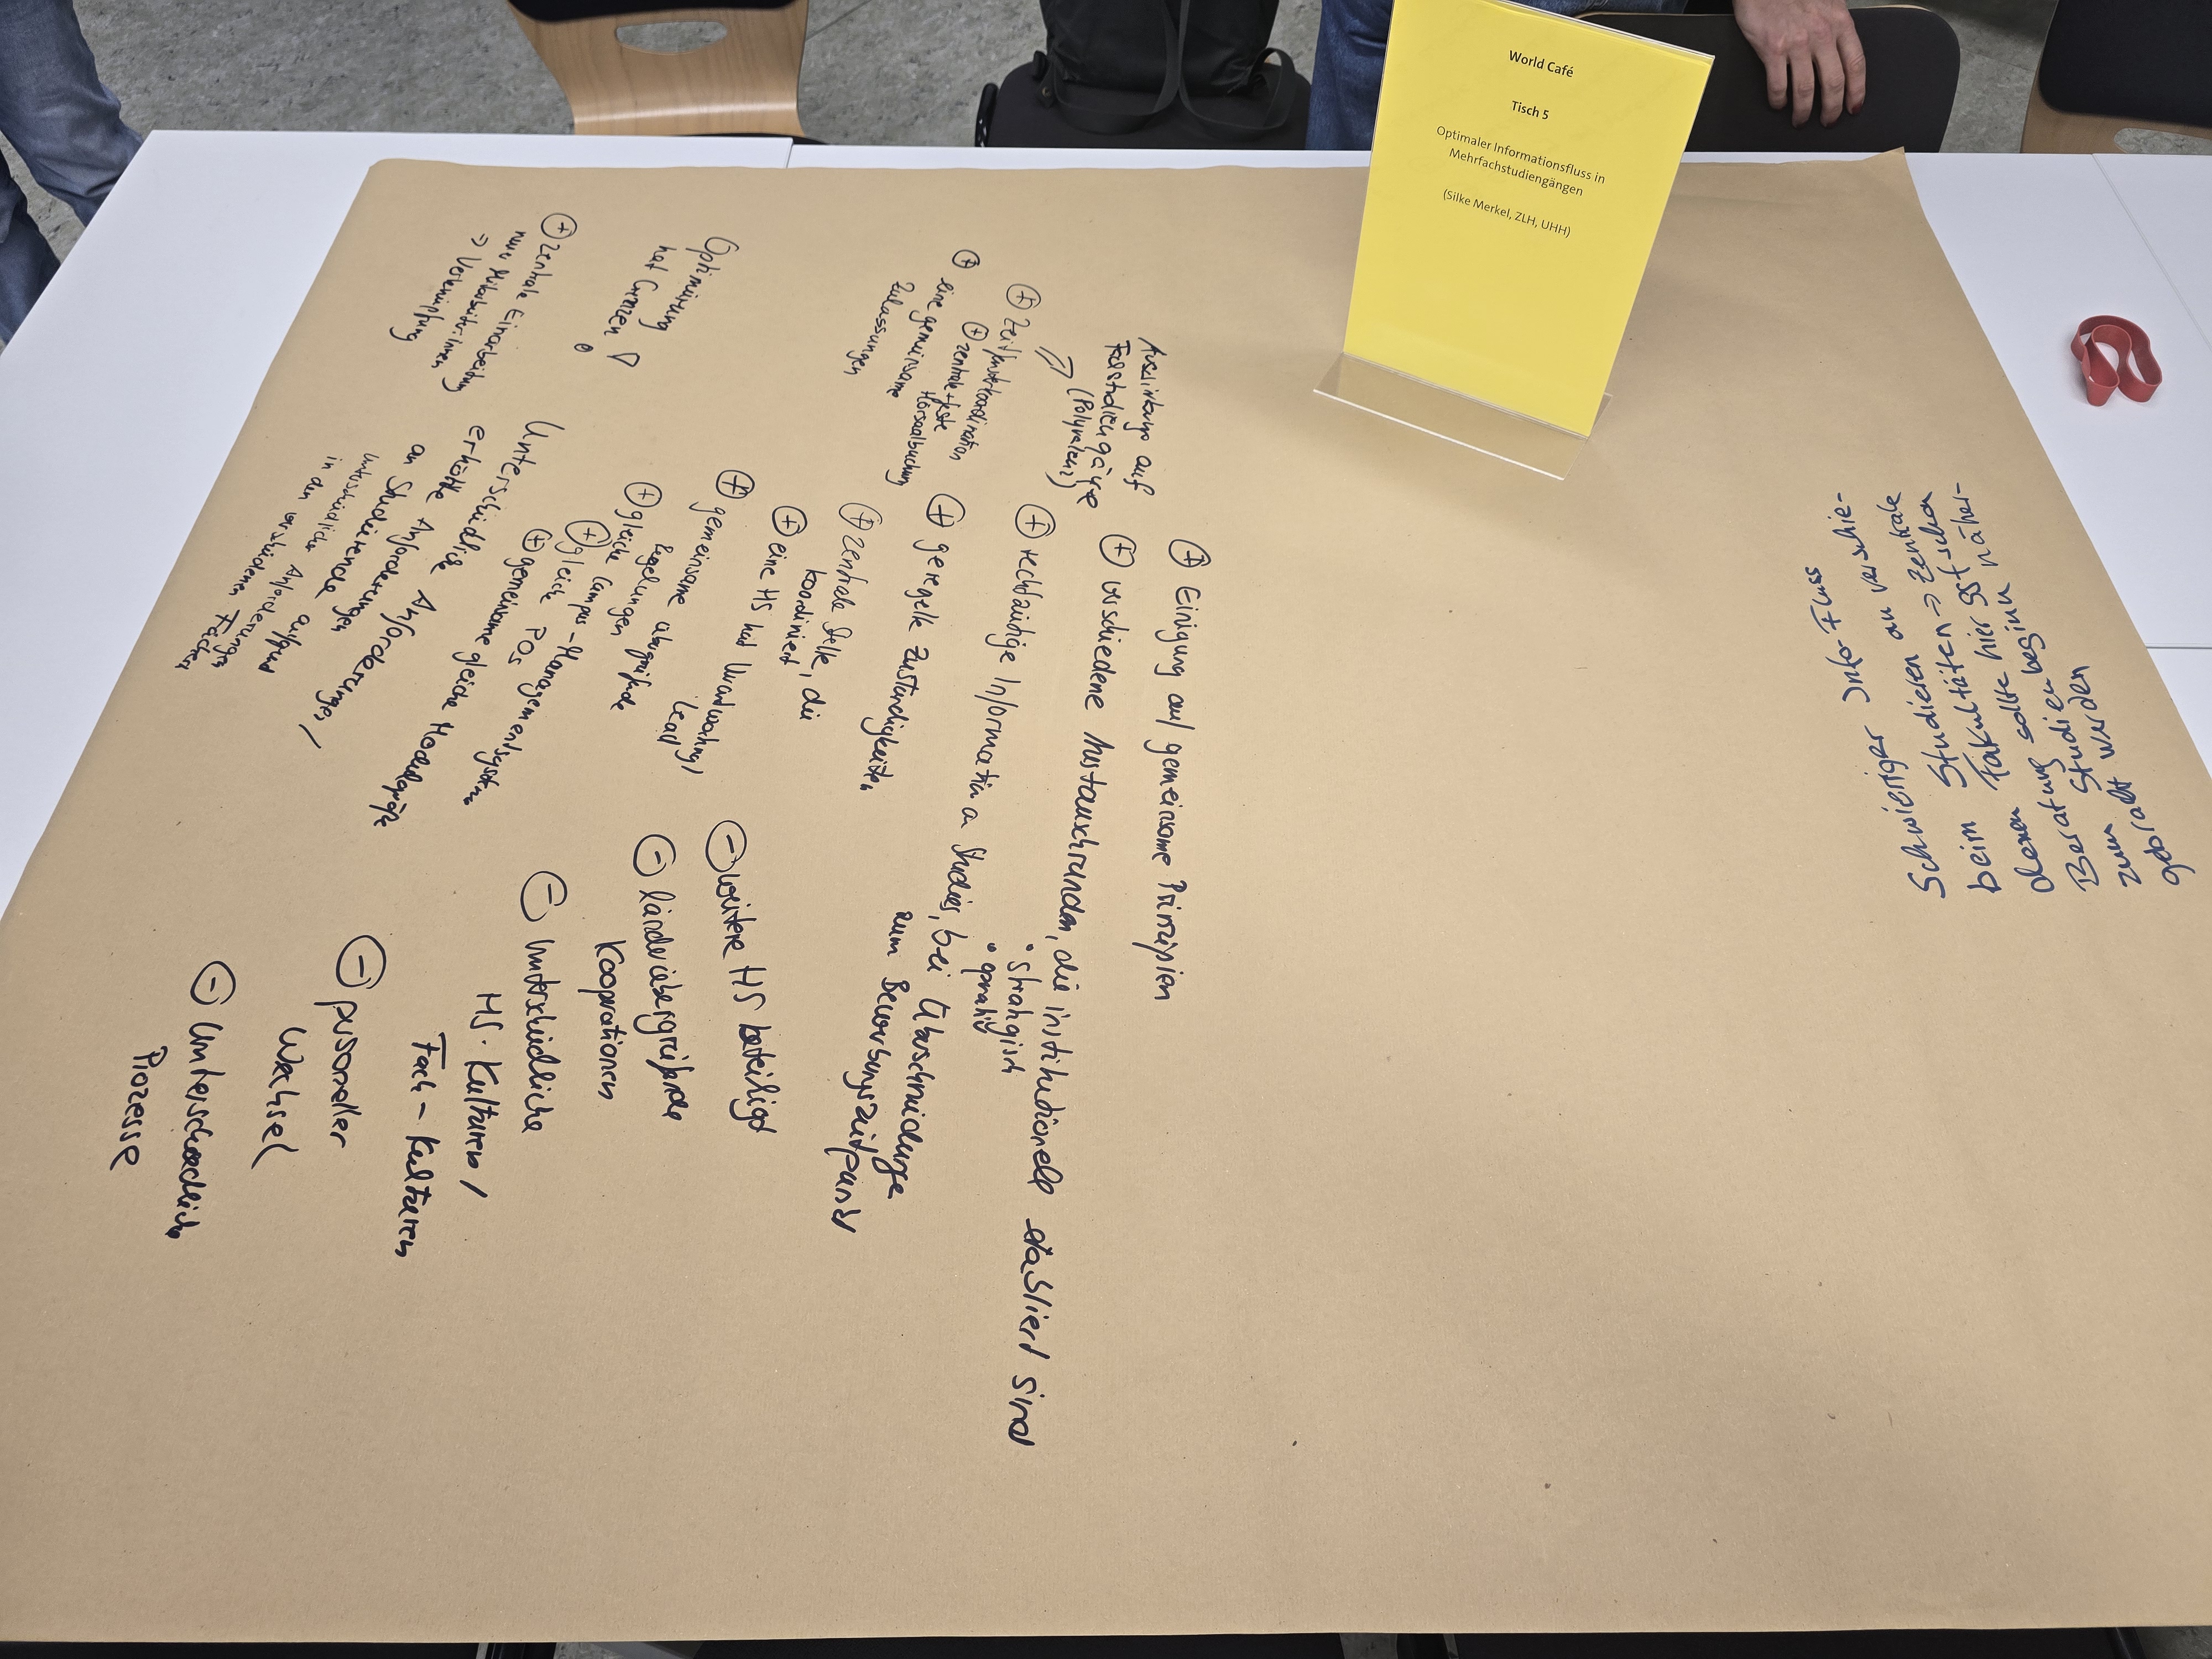 World Café
Tisch 5
Optimaler Informationsfluss in
Mehrfachstudiengängen
(Silke Merkel, ZLH, UHH)
Schwieriger Info-Fluss
beim Studieren an verschie-
denen Fakultäten → zentrale
Beratung sollte hier ggf schon
zum Studienbeginn näher-
gebracht werden
⊕ Einigung auf gemeinsame Prinzipien
⊕ verschiedene Austauschrunden, die institutionell etabliert sind
• strategisch
• operativ
⊕ rechtzeitige Information a Studies, bei Überschneidunge
zum Bewerbungszeitpunkt
⊕ geregelte Zuständigkeiten
⊕ zentrale Stelle, die
koordiniert
⊕ eine HS hat /
Lead
⊕ gemeinsame übergreifende
Regelungen
⊕ gleiche Campus-Managementsysteme
⊕ gleiche POs
⊕ gemeinsame gleiche Modulgröße
Auswirkung auf
Fachstudiengänge
(Polyvalenz)
⊕ Zeitfensterkoordination
⊕ zentrale + feste
Hörsaalbuchung
⊕ eine gemeinsame
Zulassungen
Optimierung
hat Grenzen !
⊕ zentrale Einarbeitung
neue Mitarbeiter:innen
⇒ Verknüpfung
Unterschiedliche Anforderungen /
erhöhte Anforderungen
an Studierende aufgrund
unterschiedlicher Anforderungen
in den verschiedenen Fächern
⊖ weitere HS beteiligt
⊖ länderübergreifende
Kooperationen
⊖ Unterschiedliche
HS-Kulturen /
Fach-Kulturen
⊖ personeller
Wechsel
⊖ Unterschiedliche
Prozesse